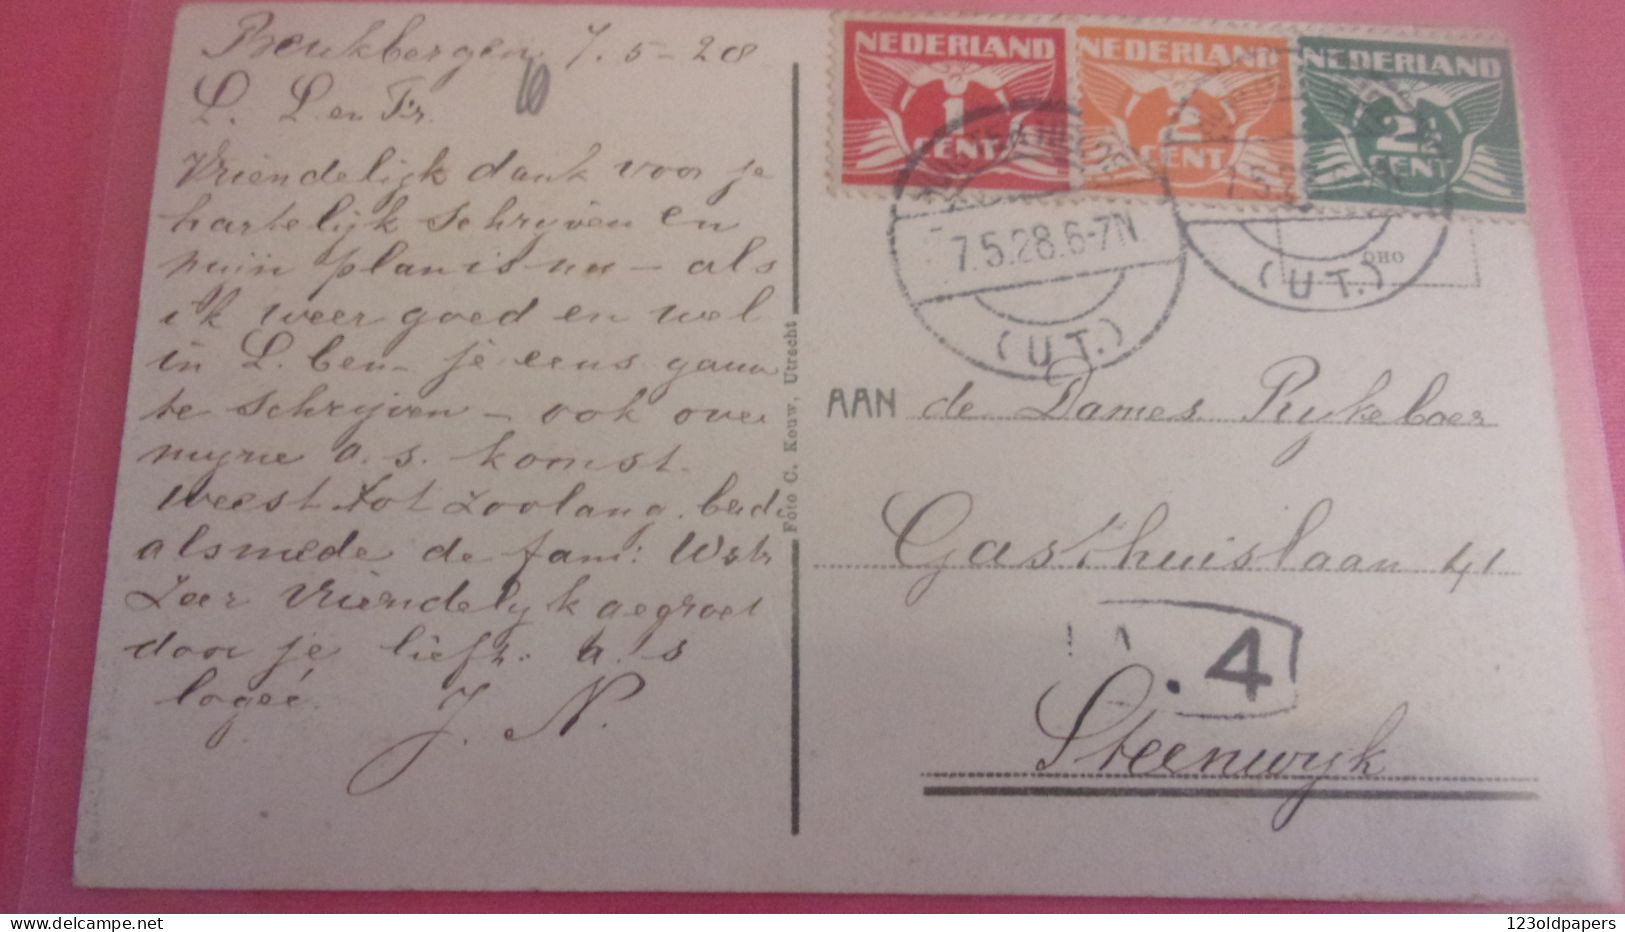 Beukbergen 7.5-28
L. L. en Tr.
Vriendelijk dank voor je
hartelijk schrijven en
als
ik weer goed en wel
in L. ben je eens gauw
te schrijven - ook over
myne a.s. komst.
Weest tot zoolang
alsmede de fam:
Zeer vriendelyk gegroet
door je liefh. a.s
logeé.
J. N.
Foto C. Kouw, Utrecht
NEDERLAND
1
CENT
NEDERLAND
2
CENT
NEDERLAND
2½
CENT
7.5.28.6-7N
(UT.)
(UT.)
AAN de Dames Rykeboer
Gasthuislaan 41
.4
Steenwyk
123oldpapers